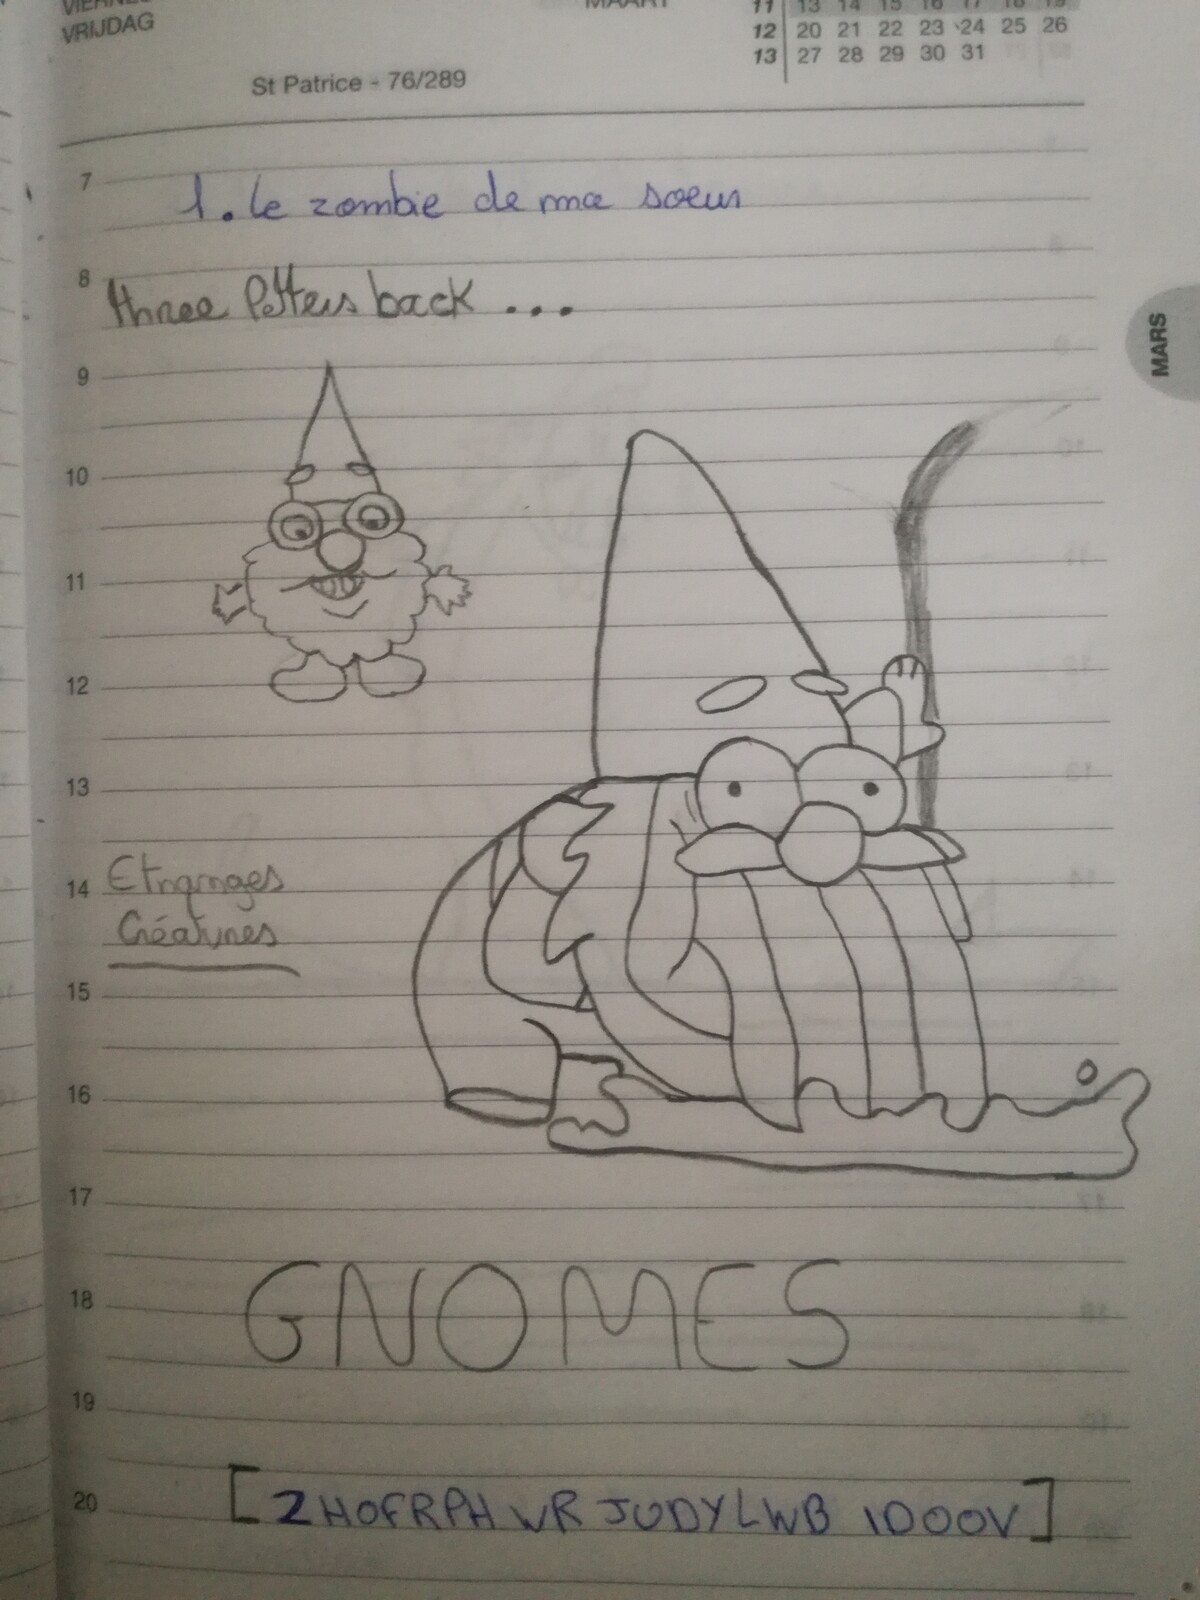 VRIJDAG
MAART
11 13 14 15 16 17 18 19
12 20 21 22 23 24 25 26
13 27 28 29 30 31
St Patrice - 76/289
7
1. le zombie de ma soeur
8
three letters back ...
9
10
11
12
13
14
Etranges
Créatures
15
16
17
18
GNOMES
19
20
[ZHOFRPH WR JUDYLWB IDOOV]
MARS